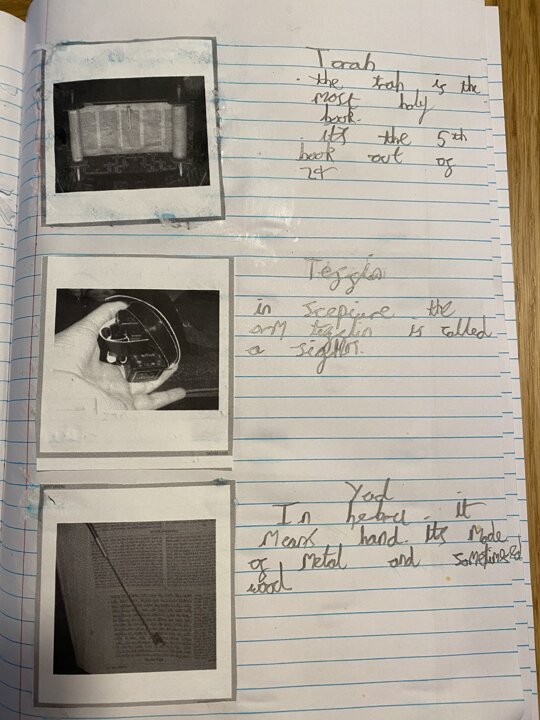 Torah
. the trah is the
most holy
book.
. its the 5th
book out of
24
Tefflin
in scepiure the
arm tefelin is called
a sign.
Yad
In hebrew . it
Means hand. Its Made
of Metal and sometimes
wood